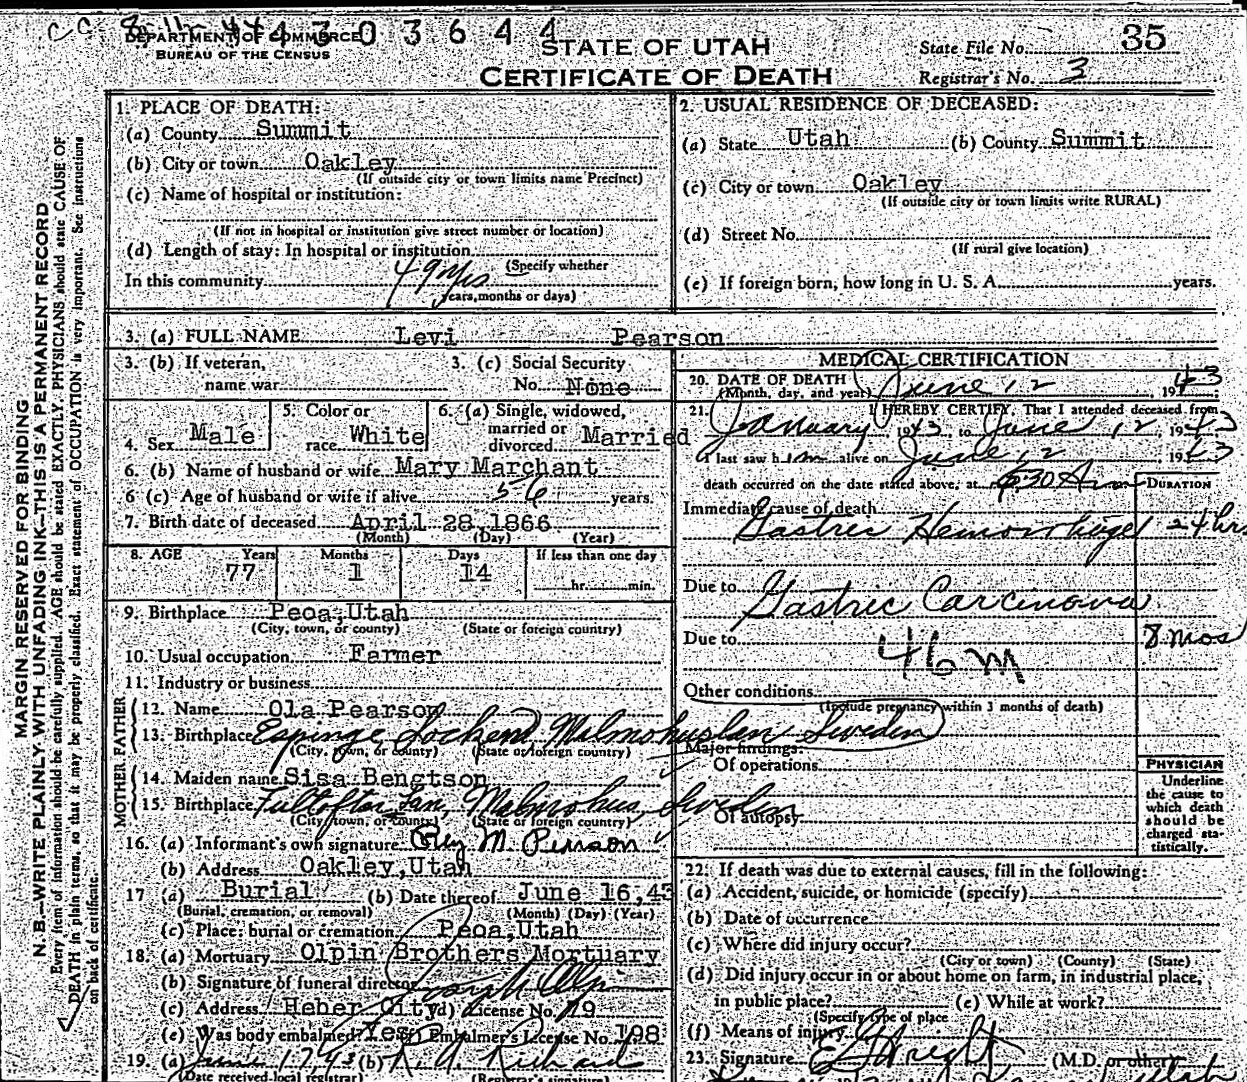 4303644
DEPARTMENT OF COMMERCE
BUREAU OF THE CENSUS
STATE OF UTAH
CERTIFICATE OF DEATH
State File No. 35
Registrar's No. 3
MARGIN RESERVED FOR BINDING
N. B.—WRITE PLAINLY WITH UNFADING INK—THIS IS A PERMANENT RECORD
Every item of information should be carefully supplied. AGE should be stated EXACTLY. PHYSICIANS should state CAUSE OF
DEATH in plain terms, so that it may be properly classified. Exact statement of OCCUPATION is very important. See instructions
on back of certificate.
1. PLACE OF DEATH:
(a) County Summit
(b) City or town Oakley
(If outside city or town limits name Precinct)
(c) Name of hospital or institution:
(If not in hospital or institution give street number or location)
(d) Length of stay: In hospital or institution
(Specify whether
In this community 49 yrs
years, months or days)
2. USUAL RESIDENCE OF DECEASED:
(a) State Utah (b) County Summit
(c) City or town Oakley
(If outside city or town limits write RURAL)
(d) Street No.
(If rural give location)
(e) If foreign born, how long in U. S. A. years.
3. (a) FULL NAME Levi Pearson
3. (b) If veteran,
name war
3. (c) Social Security
No. None
4. Sex Male
5. Color or
race White
6. (a) Single, widowed,
married or
divorced Married
6. (b) Name of husband or wife Mary Marchant
6 (c) Age of husband or wife if alive 56 years.
7. Birth date of deceased April 28, 1866
(Month) (Day) (Year)
8. AGE Years Months Days If less than one day
77 1 14 hr. min.
9. Birthplace Peoa, Utah
(City, town, or county) (State or foreign country)
10. Usual occupation Farmer
11. Industry or business
FATHER
12. Name Ola Pearson
13. Birthplace Espinge Malmohuslan Sweden
(City, town, or county) (State or foreign country)
MOTHER
14. Maiden name Sisa Bengtson
15. Birthplace Malmohus, Sweden
(City, town, or county) (State or foreign country)
16. (a) Informant's own signature M. Pearson
(b) Address Oakley, Utah
17 (a) Burial (b) Date thereof June 16, 43
(Burial, cremation, or removal) (Month) (Day) (Year)
(c) Place: burial or cremation Peoa, Utah
18. (a) Mortuary Olpin Brothers Mortuary
(b) Signature of funeral director Olpin
(c) Address Heber City (d) License No. 79
(e) Was body embalmed? Yes (f) Embalmer's License No. 198
19. (a) June 17, 43 (b)
(Date received local registrar) (Registrar's signature)
MEDICAL CERTIFICATION
20. DATE OF DEATH
(Month, day, and year) June 12, 1943
21. I HEREBY CERTIFY, That I attended deceased from
January, 1943, to June 12, 1943
I last saw him alive on June 12, 1943
death occurred on the date stated above, at 6:30 A m
DURATION
Immediate cause of death
Gastric Hemorrhage 24 hrs
Due to Gastric Carcinoma
Due to 8 mos
46 m
Other conditions
(Include pregnancy within 3 months of death)
Major findings:
Of operations
Of autopsy
PHYSICIAN
Underline
the cause to
which death
should be
charged sta-
tistically.
22. If death was due to external causes, fill in the following:
(a) Accident, suicide, or homicide (specify)
(b) Date of occurrence
(c) Where did injury occur?
(City or town) (County) (State)
(d) Did injury occur in or about home on farm, in industrial place,
in public place? (e) While at work?
(Specify type of place
(f) Means of injury
23. Signature (M.D. or other)